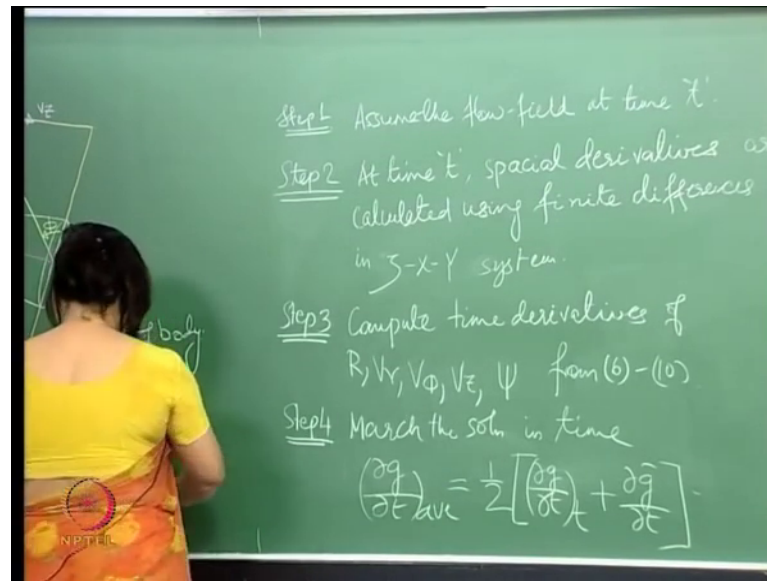 Vz
Φ
f body.
Step1 Assume the flow-field at time 't'.
Step2 At time 't', spacial derivatives as
calculated using finite differences
in ζ-X-Y system.
Step3 Compute time derivatives of
R, Vr, VΦ, Vz, Ψ from (6)-(10)
Step4 March the soln in time
(∂g/∂t)ave = 1/2[(∂g/∂t)t + ∂g̅/∂t].
NPTEL